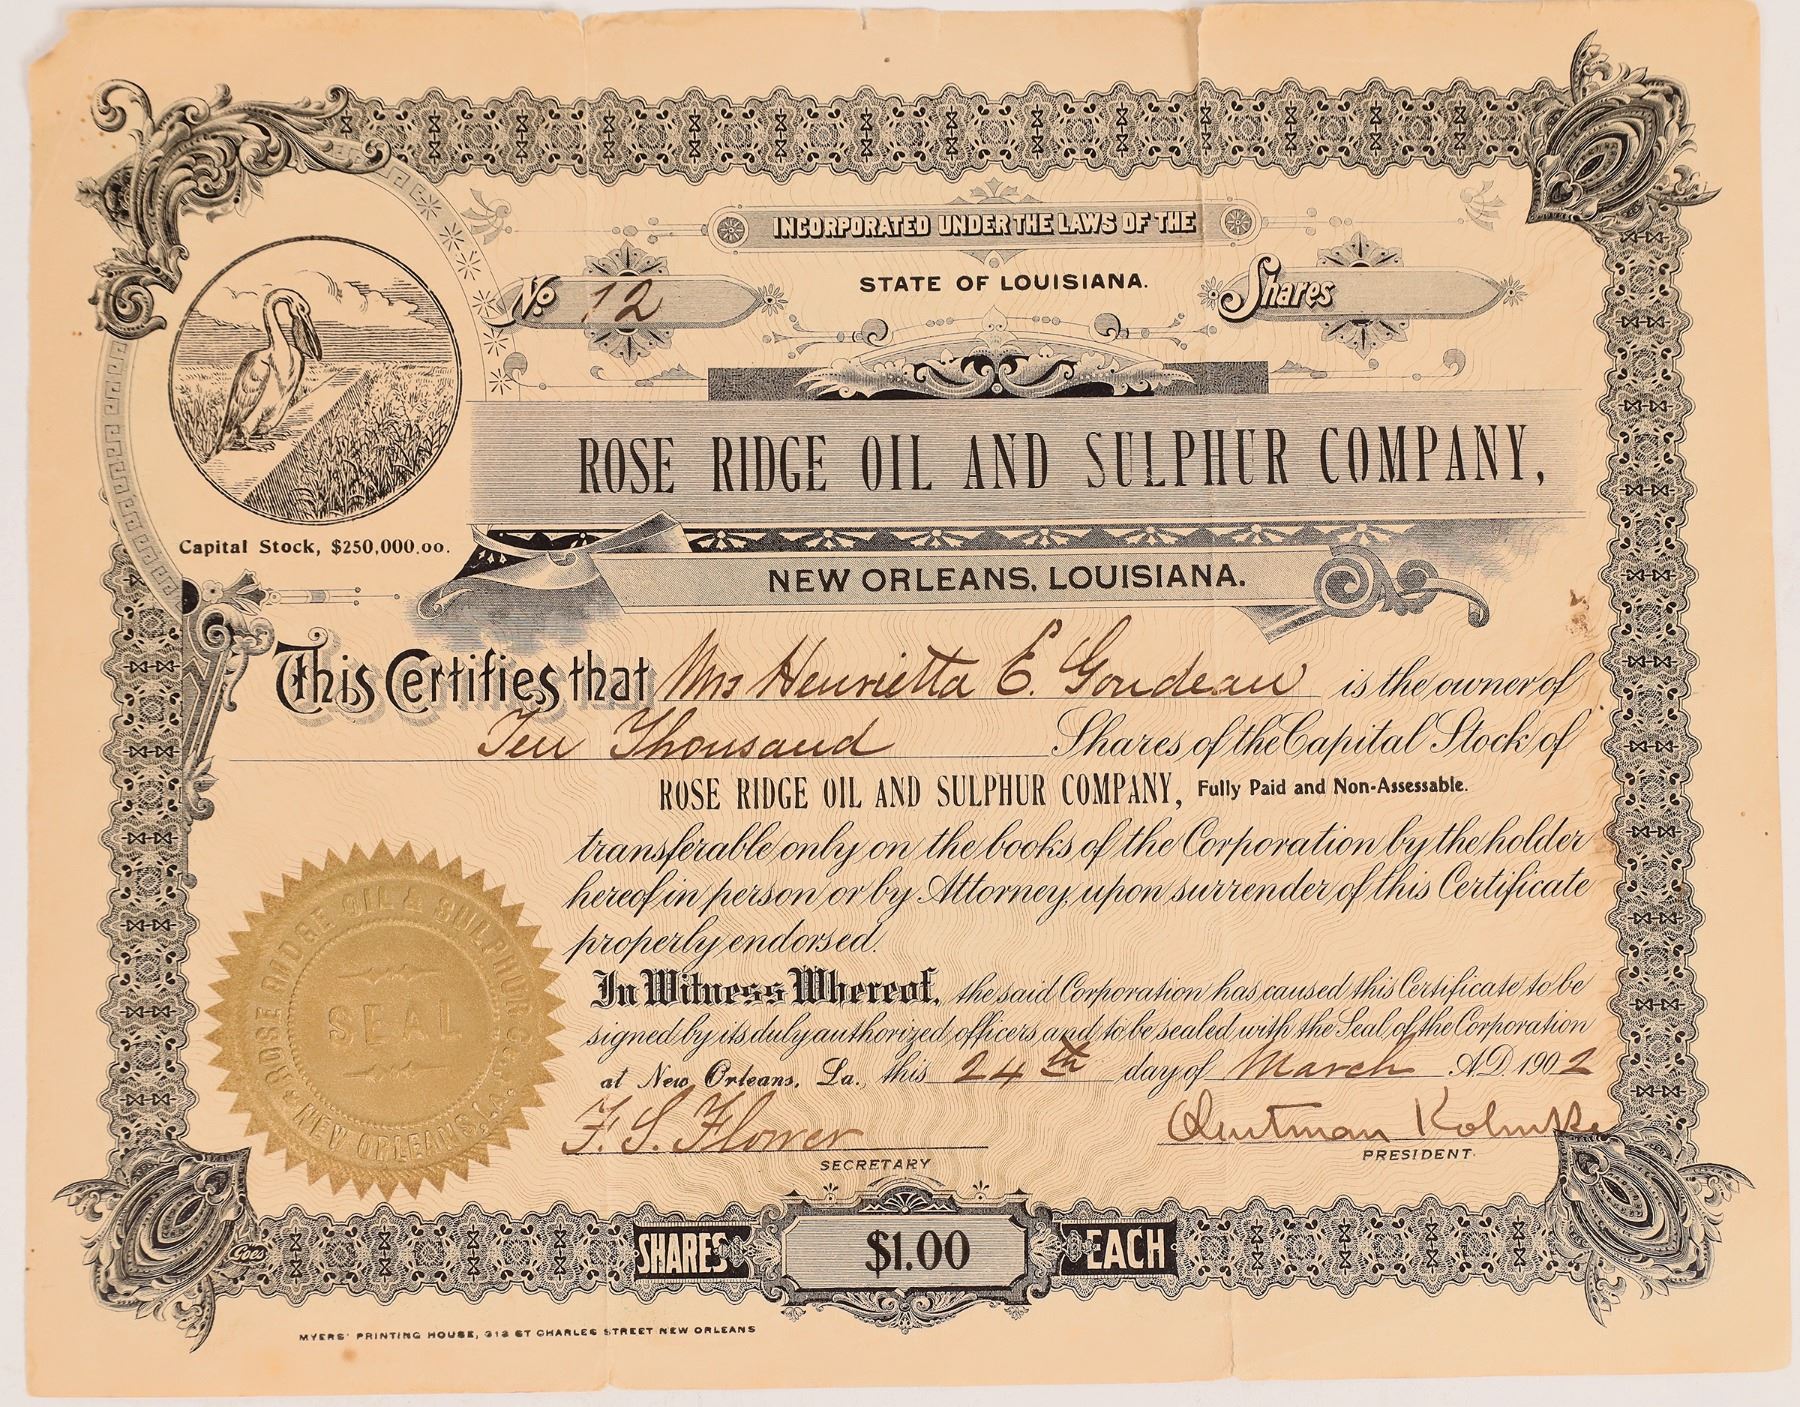 INCORPORATED UNDER THE LAWS OF THE
STATE OF LOUISIANA.
No 12
Shares
ROSE RIDGE OIL AND SULPHUR COMPANY,
Capital Stock, $250,000.00.
NEW ORLEANS, LOUISIANA.
This Certifies that Mrs Henrietta E. Goudeau is the owner of
Ten Thousand Shares of the Capital Stock of
ROSE RIDGE OIL AND SULPHUR COMPANY, Fully Paid and Non-Assessable.
transferable only on the books of the Corporation by the holder
hereof in person or by Attorney, upon surrender of this Certificate
properly endorsed.
In Witness Whereof, the said Corporation has caused this Certificate to be
signed by its duly authorized officers, and to be sealed with the Seal of the Corporation
at New Orleans, La., this 24th day of March A.D. 1902
F. S. Flower
SECRETARY
PRESIDENT.
ROSE RIDGE OIL & SULPHUR CO.
SEAL
NEW ORLEANS, LA.
Goes
SHARES $1.00 EACH
MYERS' PRINTING HOUSE, 313 ST CHARLES STREET NEW ORLEANS